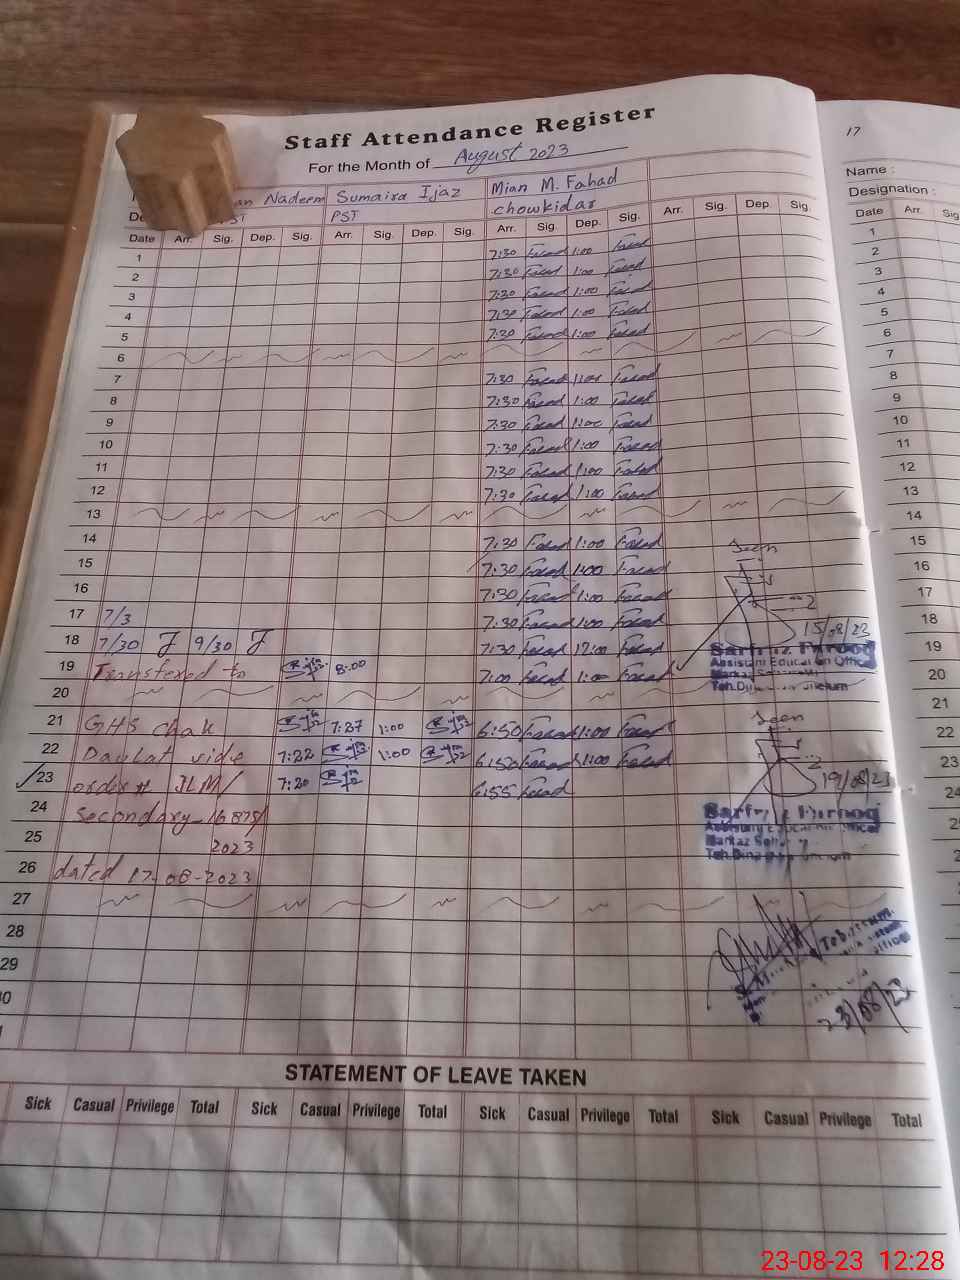 Staff Attendance Register
For the Month of August 2023
Nadeem Sumaira Ijaz Mian M. Fahad
PST chowkidar
Date Arr. Sig. Dep. Sig. Arr. Sig. Dep. Sig. Arr. Sig. Dep. Sig. Arr. Sig. Dep. Sig.
1 7:30 Fahad 1:00 Fahad
2 7:30 Fahad 1:00 Fahad
3 7:30 Fahad 1:00 Fahad
4 7:30 Fahad 1:00 Fahad
5 7:30 Fahad 1:00 Fahad
6
7 7:30 Fahad 1:00 Fahad
8 7:30 Fahad 1:00 Fahad
9 7:30 Fahad 1:00 Fahad
10 7:30 Fahad 1:00 Fahad
11 7:30 Fahad 1:00 Fahad
12 7:30 Fahad 1:00 Fahad
13
14 7:30 Fahad 1:00 Fahad
15 7:30 Fahad 1:00 Fahad
16 7:30 Fahad 1:00 Fahad
17 7/3 7:30 Fahad 1:00 Fahad
18 7/30 9/30 7:30 Fahad 12:00 Fahad
19 Transfered to 8:00 7:00 Fahad 1:00 Fahad
20
21 GHS Chak 7:37 1:00 6:50 Fahad 1:00 Fahad
22 Daulat vide 7:22 1:00 6:50 Fahad 1:00 Fahad
23 order # JLM/ 7:20 6:55 Fahad
24 Secondary-
25 2023
26 dated 17-08-2023
27
28
29
Seen
15/08/23
Sarfraz Farooq
Assistant Education Officer
Markaz
Seen
19/08/23
Sarfraz Farooq
Markaz
23/08/23
STATEMENT OF LEAVE TAKEN
Sick Casual Privilege Total Sick Casual Privilege Total Sick Casual Privilege Total Sick Casual Privilege Total
17
Name :
Designation :
Date Arr. Sig
1
2
3
4
5
6
7
8
9
10
11
12
13
14
15
16
17
18
19
20
21
22
23
24
23-08-23 12:28